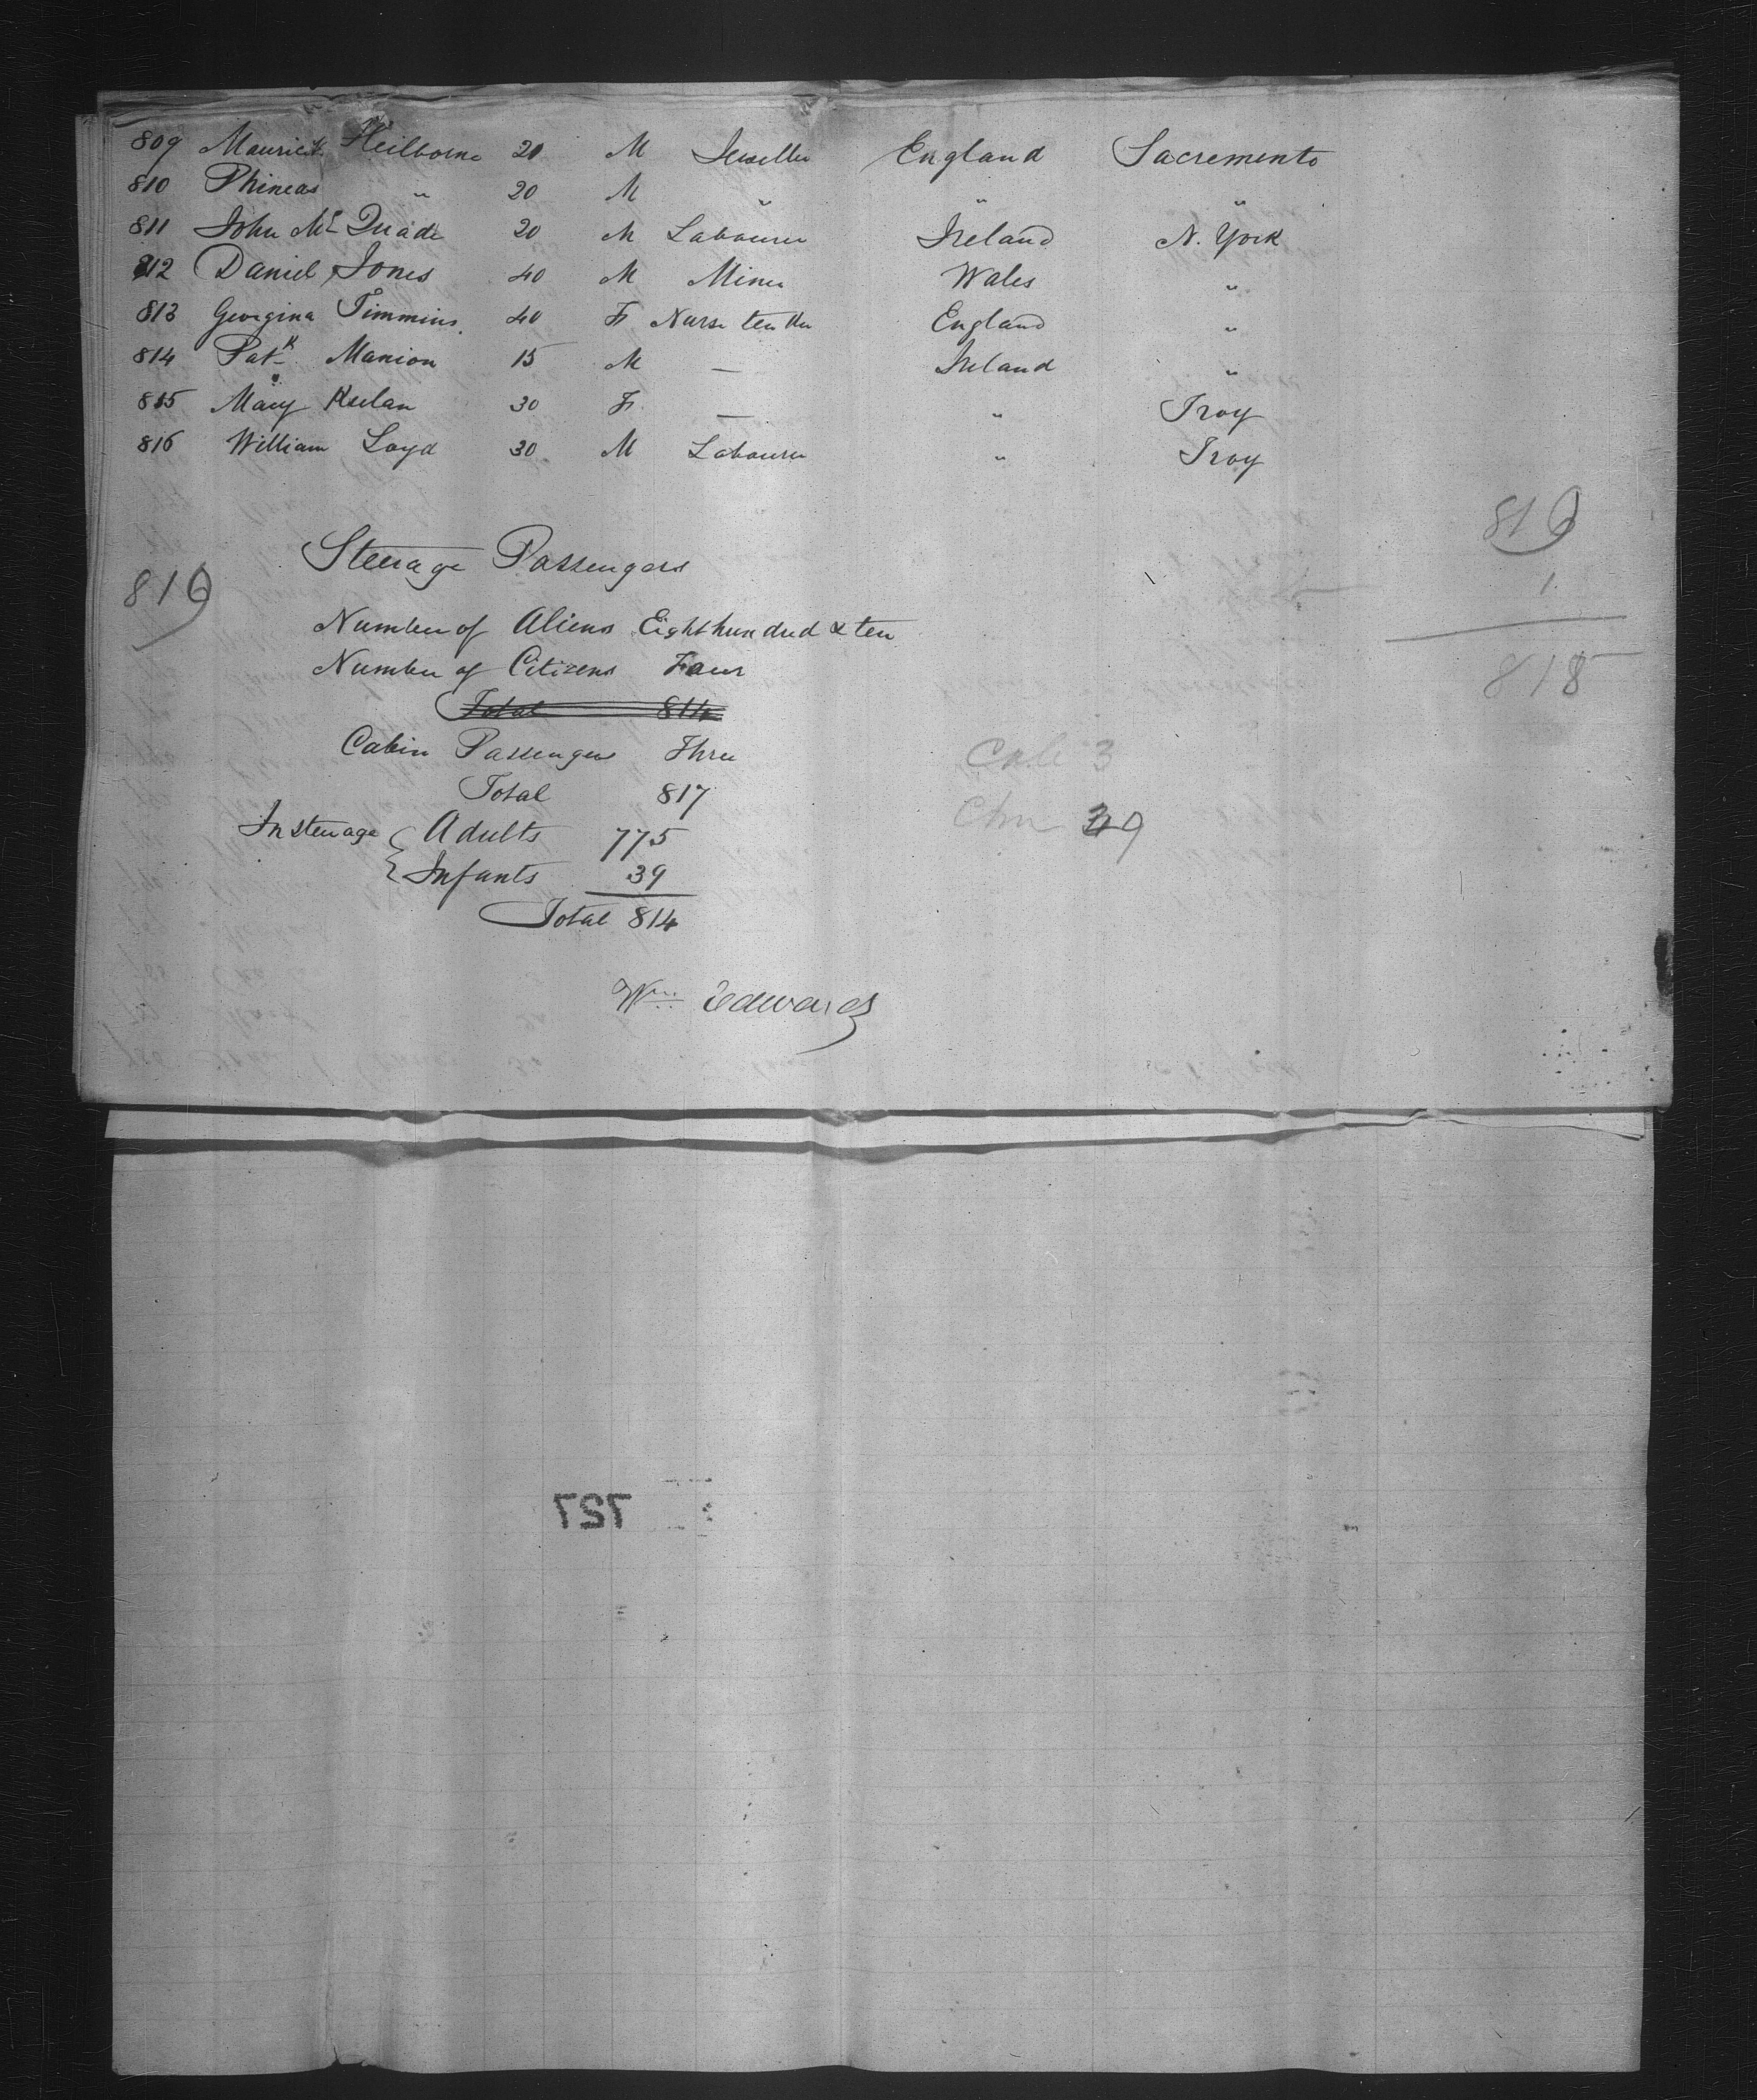 809 Maurice Heilborne 20 M Jeweller England Sacremento
810 Phineas " 20 M " " "
811 John McQuade 20 M Labourer Ireland N. York
812 Daniel Jones 40 M Miner Wales "
813 Georgina Timmins 40 F Nurse England "
814 Patk Manion 15 M — Ireland "
815 Mary 30 F — " Troy
816 William Loyd 30 M Labourer " Troy
Steerage Passengers
Number of Aliens Eight hundred & ten
Number of Citizens Four
Total 814
Cabin Passengers Three
Total 817
In steerage Adults 775
Infants 39
Total 814
Wm Edwards
816
816
1
818
3
39
727